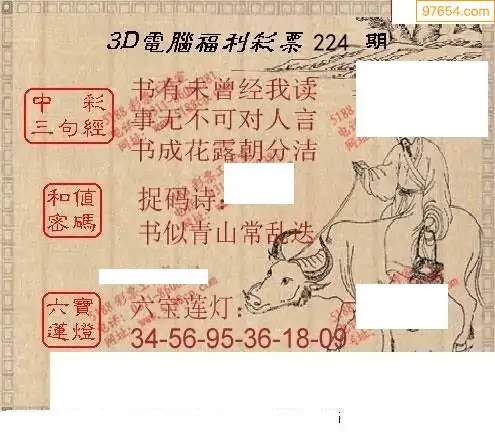 97654.com
3D電腦福利彩票 224 期
中彩
三句經
书有未曾经我读
事无不可对人言
书成花露朝分洁
和值
密碼
捉码诗：
书似青山常乱迭
六寶
蓮燈
六宝莲灯：
34-56-95-36-18-09